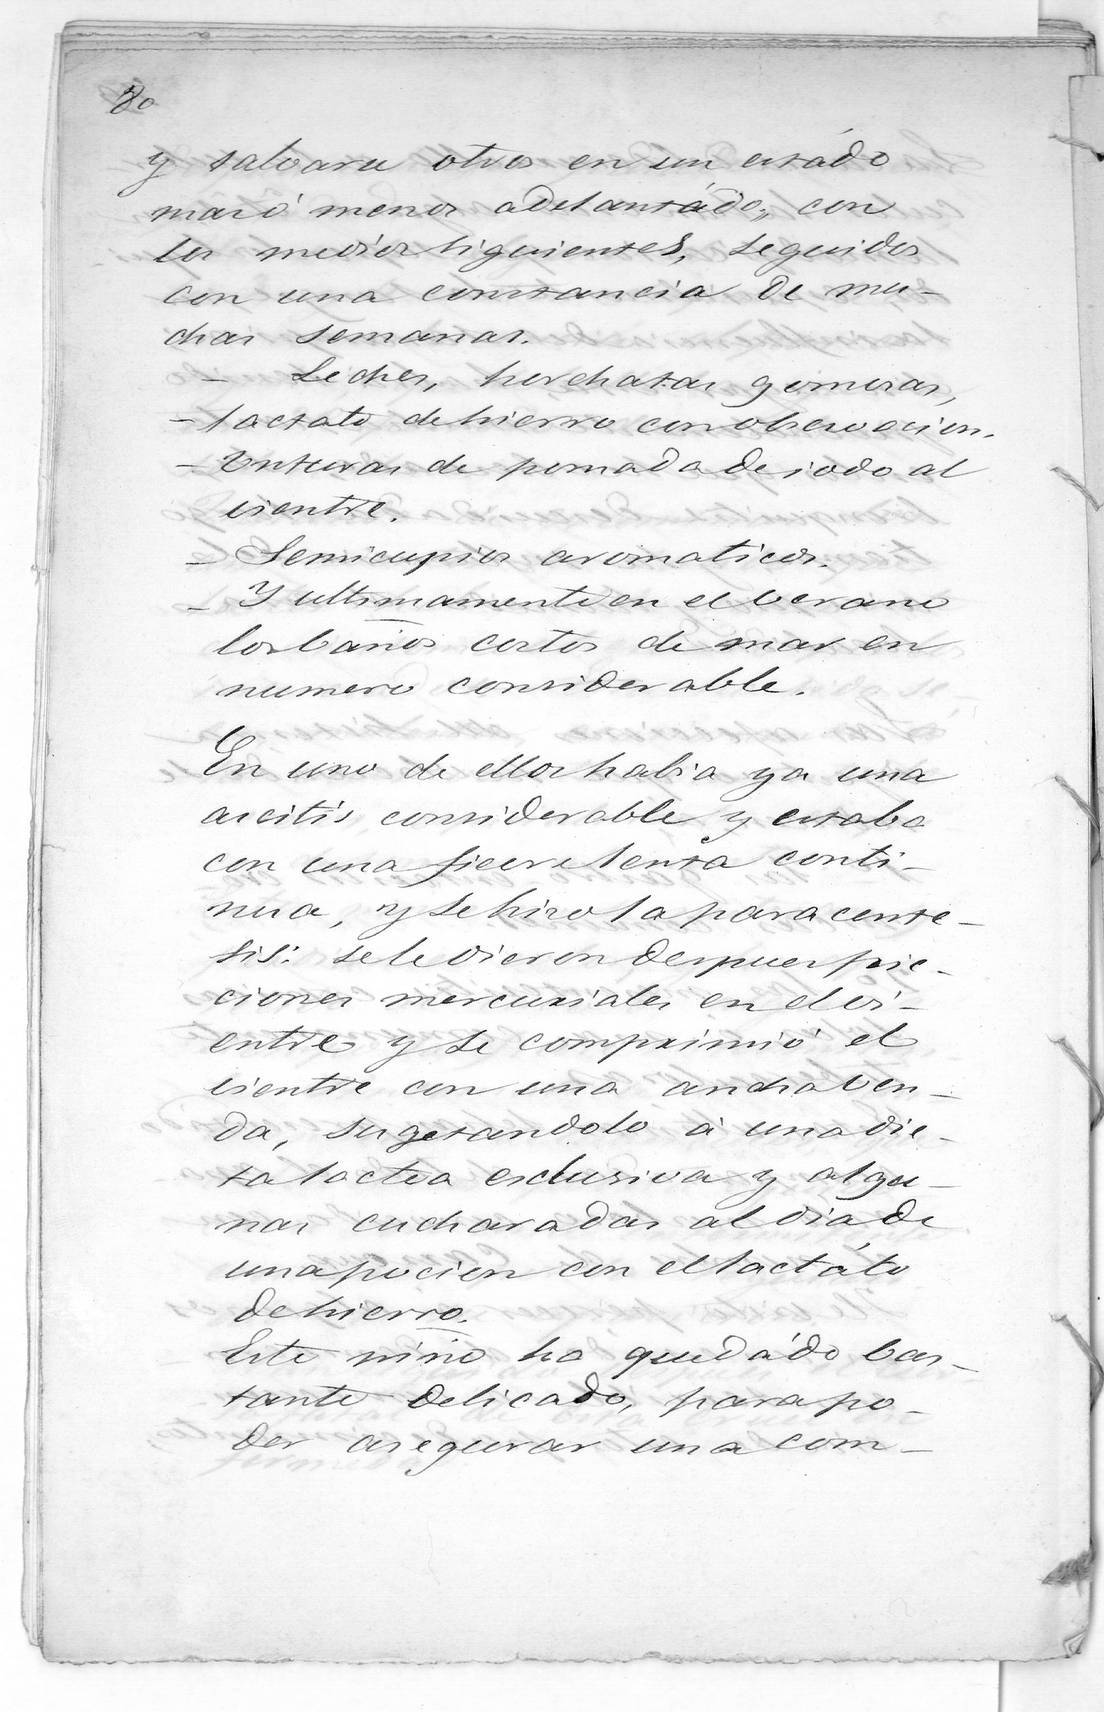 80
y salvarse otros en un estádo
mas ó menos adelantádo, con
los medios siguientes, seguidos
con una constancia de mu-
chas semanas.
- Leches, horchatas gomosas,
- lactato de hierro con observacion.
- Unturas de pomada de iodo al
vientre.
- Semicupios aromaticos.
- Y ultimamente en el verano
los baños cortos de mar en
numero considerable.
En uno de ellos habia ya una
ascitis considerable y estaba
con una fievre lenta conti-
nua, y se hizo la paracente-
sis: se le dieron despues fric-
ciones mercuriales en el vi-
entre y se comprimió el
vientre con una ancha ven-
da, sugetandolo á una die-
ta lactea esclusiva y algu-
nas cucharadas al dia de
una pocion con el lactáto
de hierro.
Este niño ha quedádo bas-
tante delicado, para po-
der asegurar una com-